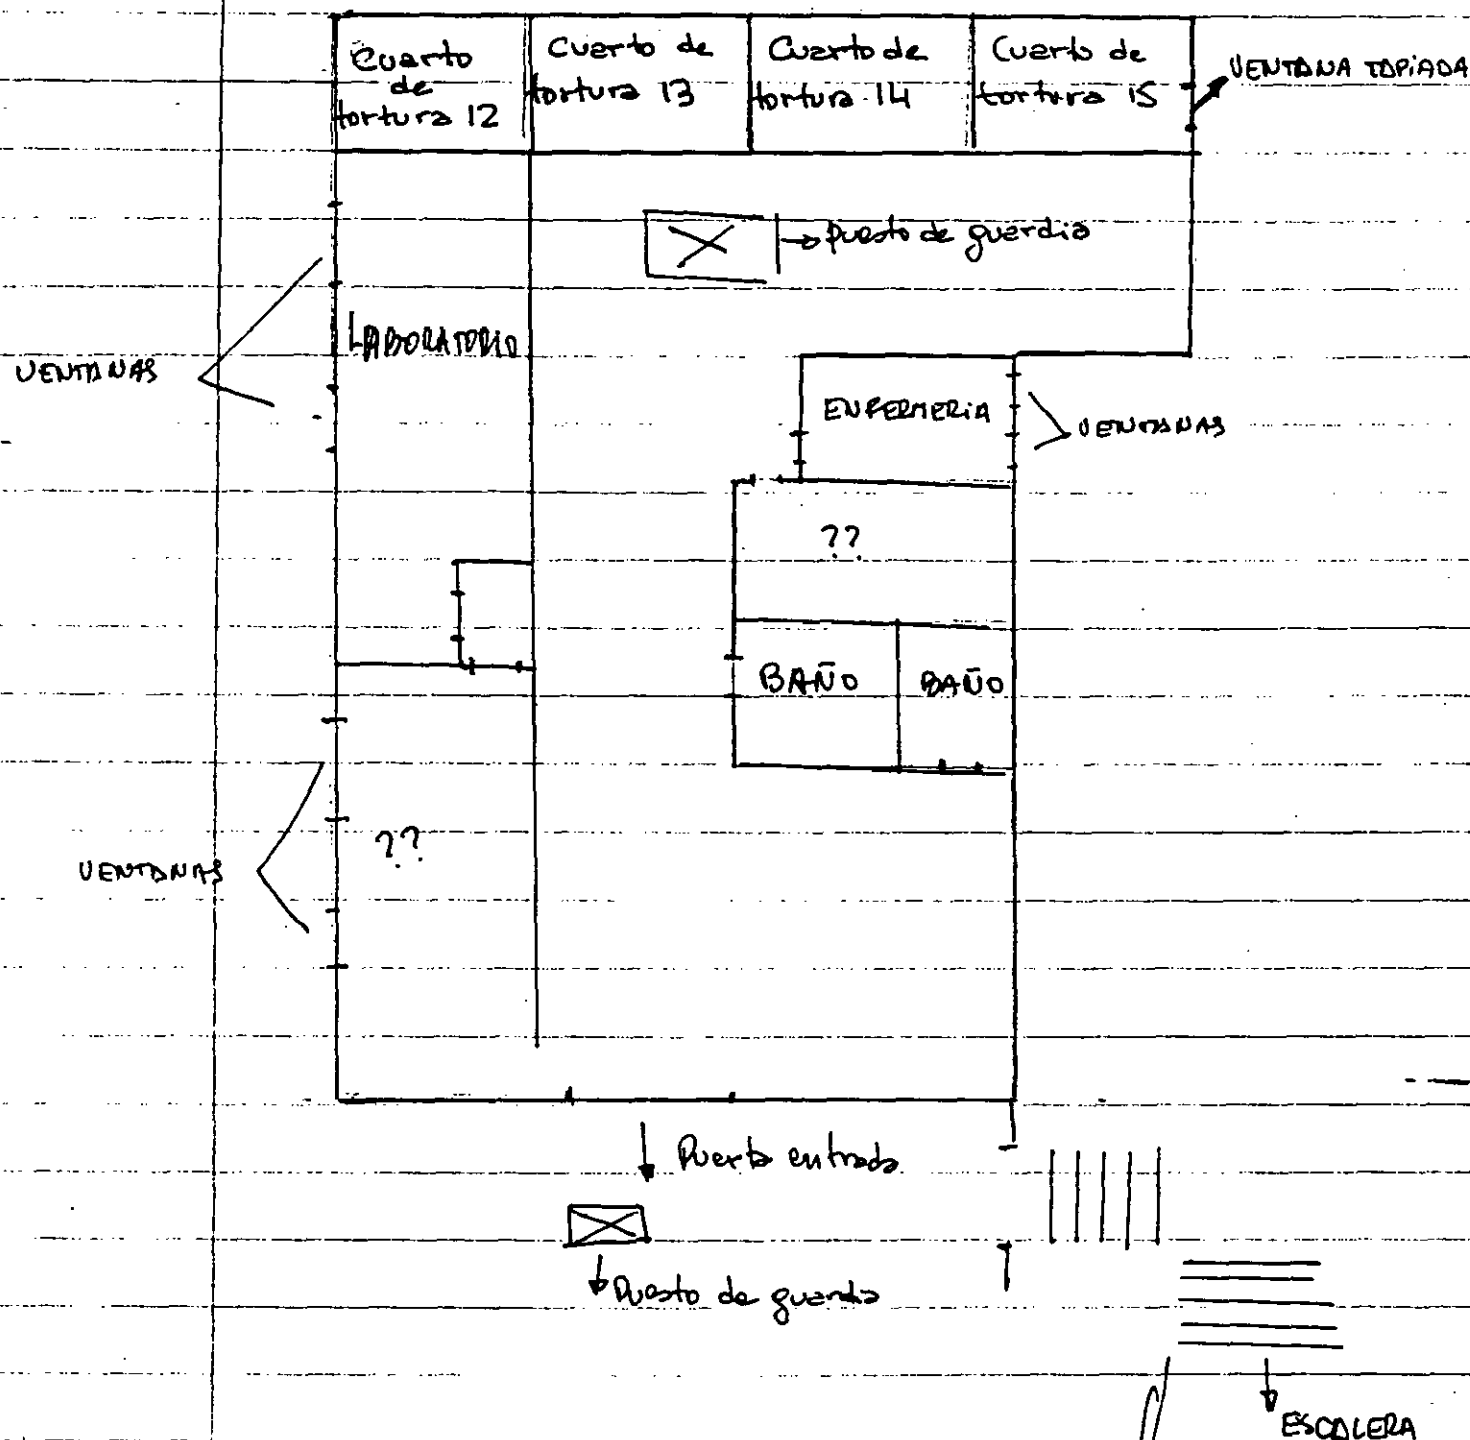 Cuarto
de
tortura 12
Cuarto de
tortura 13
Cuarto de
tortura 14
Cuarto de
tortura 15
VENTANA TAPIADA
Puesto de guardia
LABORATORIO
VENTANAS
ENFERMERIA
VENTANAS
??
BAÑO
BAÑO
??
VENTANAS
Puerta entrada
Puesto de guardia
ESCALERA